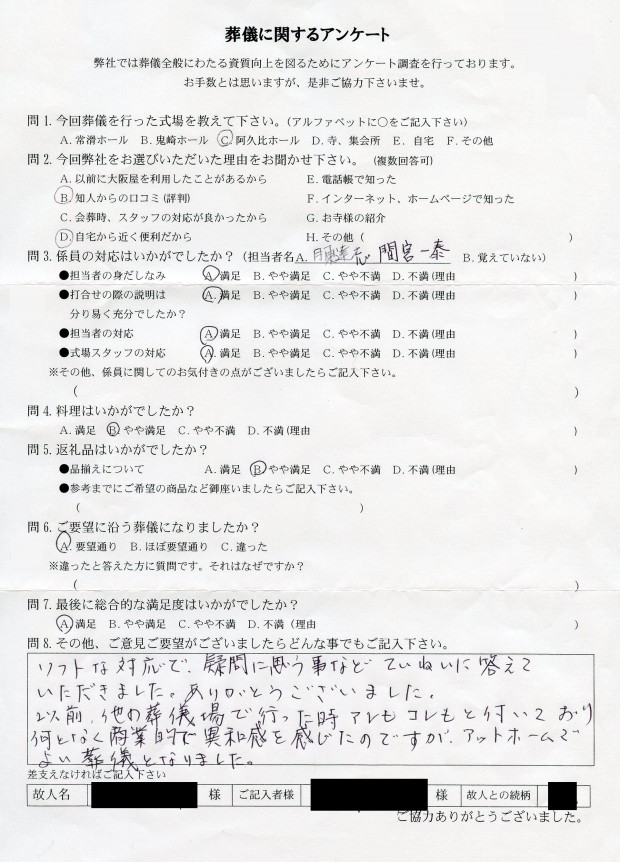 葬儀に関するアンケート
弊社では葬儀全般にわたる資質向上を図るためにアンケート調査を行っております。
お手数とは思いますが、是非ご協力下さいませ。
問1.今回葬儀を行った式場を教えて下さい。(アルファベットに○をご記入下さい)
A.常滑ホール B.鬼崎ホール C.阿久比ホール D.寺、集会所 E.自宅 F.その他
問2.今回弊社をお選びいただいた理由をお聞かせ下さい。(複数回答可)
A.以前に大阪屋を利用したことがあるから E.電話帳で知った
B.知人からの口コミ(評判) F.インターネット、ホームページで知った
C.会葬時、スタッフの対応が良かったから G.お寺様の紹介
D.自宅から近く便利だから H.その他( )
問3.係員の対応はいかがでしたか?(担当者名A. 間宮一泰 B.覚えていない)
●担当者の身だしなみ A.満足 B.やや満足 C.やや不満 D.不満(理由 )
●打合せの際の説明は A.満足 B.やや満足 C.やや不満 D.不満(理由 )
分り易く充分でしたか?
●担当者の対応 A.満足 B.やや満足 C.やや不満 D.不満(理由 )
●式場スタッフの対応 A.満足 B.やや満足 C.やや不満 D.不満(理由 )
※その他、係員に関してのお気付きの点がございましたらご記入下さい。
( )
問4.料理はいかがでしたか?
A.満足 B.やや満足 C.やや不満 D.不満(理由 )
問5.返礼品はいかがでしたか?
●品揃えについて A.満足 B.やや満足 C.やや不満 D.不満(理由 )
●参考までにご希望の商品など御座いましたらご記入下さい。
( )
問6.ご要望に沿う葬儀になりましたか?
A.要望通り B.ほぼ要望通り C.違った
※違ったと答えた方に質問です。それはなぜですか?
( )
問7.最後に総合的な満足度はいかがでしたか?
A.満足 B.やや満足 C.やや不満 D.不満(理由 )
問8.その他、ご意見ご要望がございましたらどんな事でもご記入下さい。
ソフトな対応で、疑問に思う事など ていねいに答えて
いただきました。ありがとうございました。
以前、他の葬儀場で行った時 アレも コレもと付いて おり
何となく商業的で異和感を感じたのですが、アットホームで
よい葬儀となりました。
差支えなければご記入下さい
故人名 様 ご記入者様 様 故人との続柄
ご協力ありがとうございました。